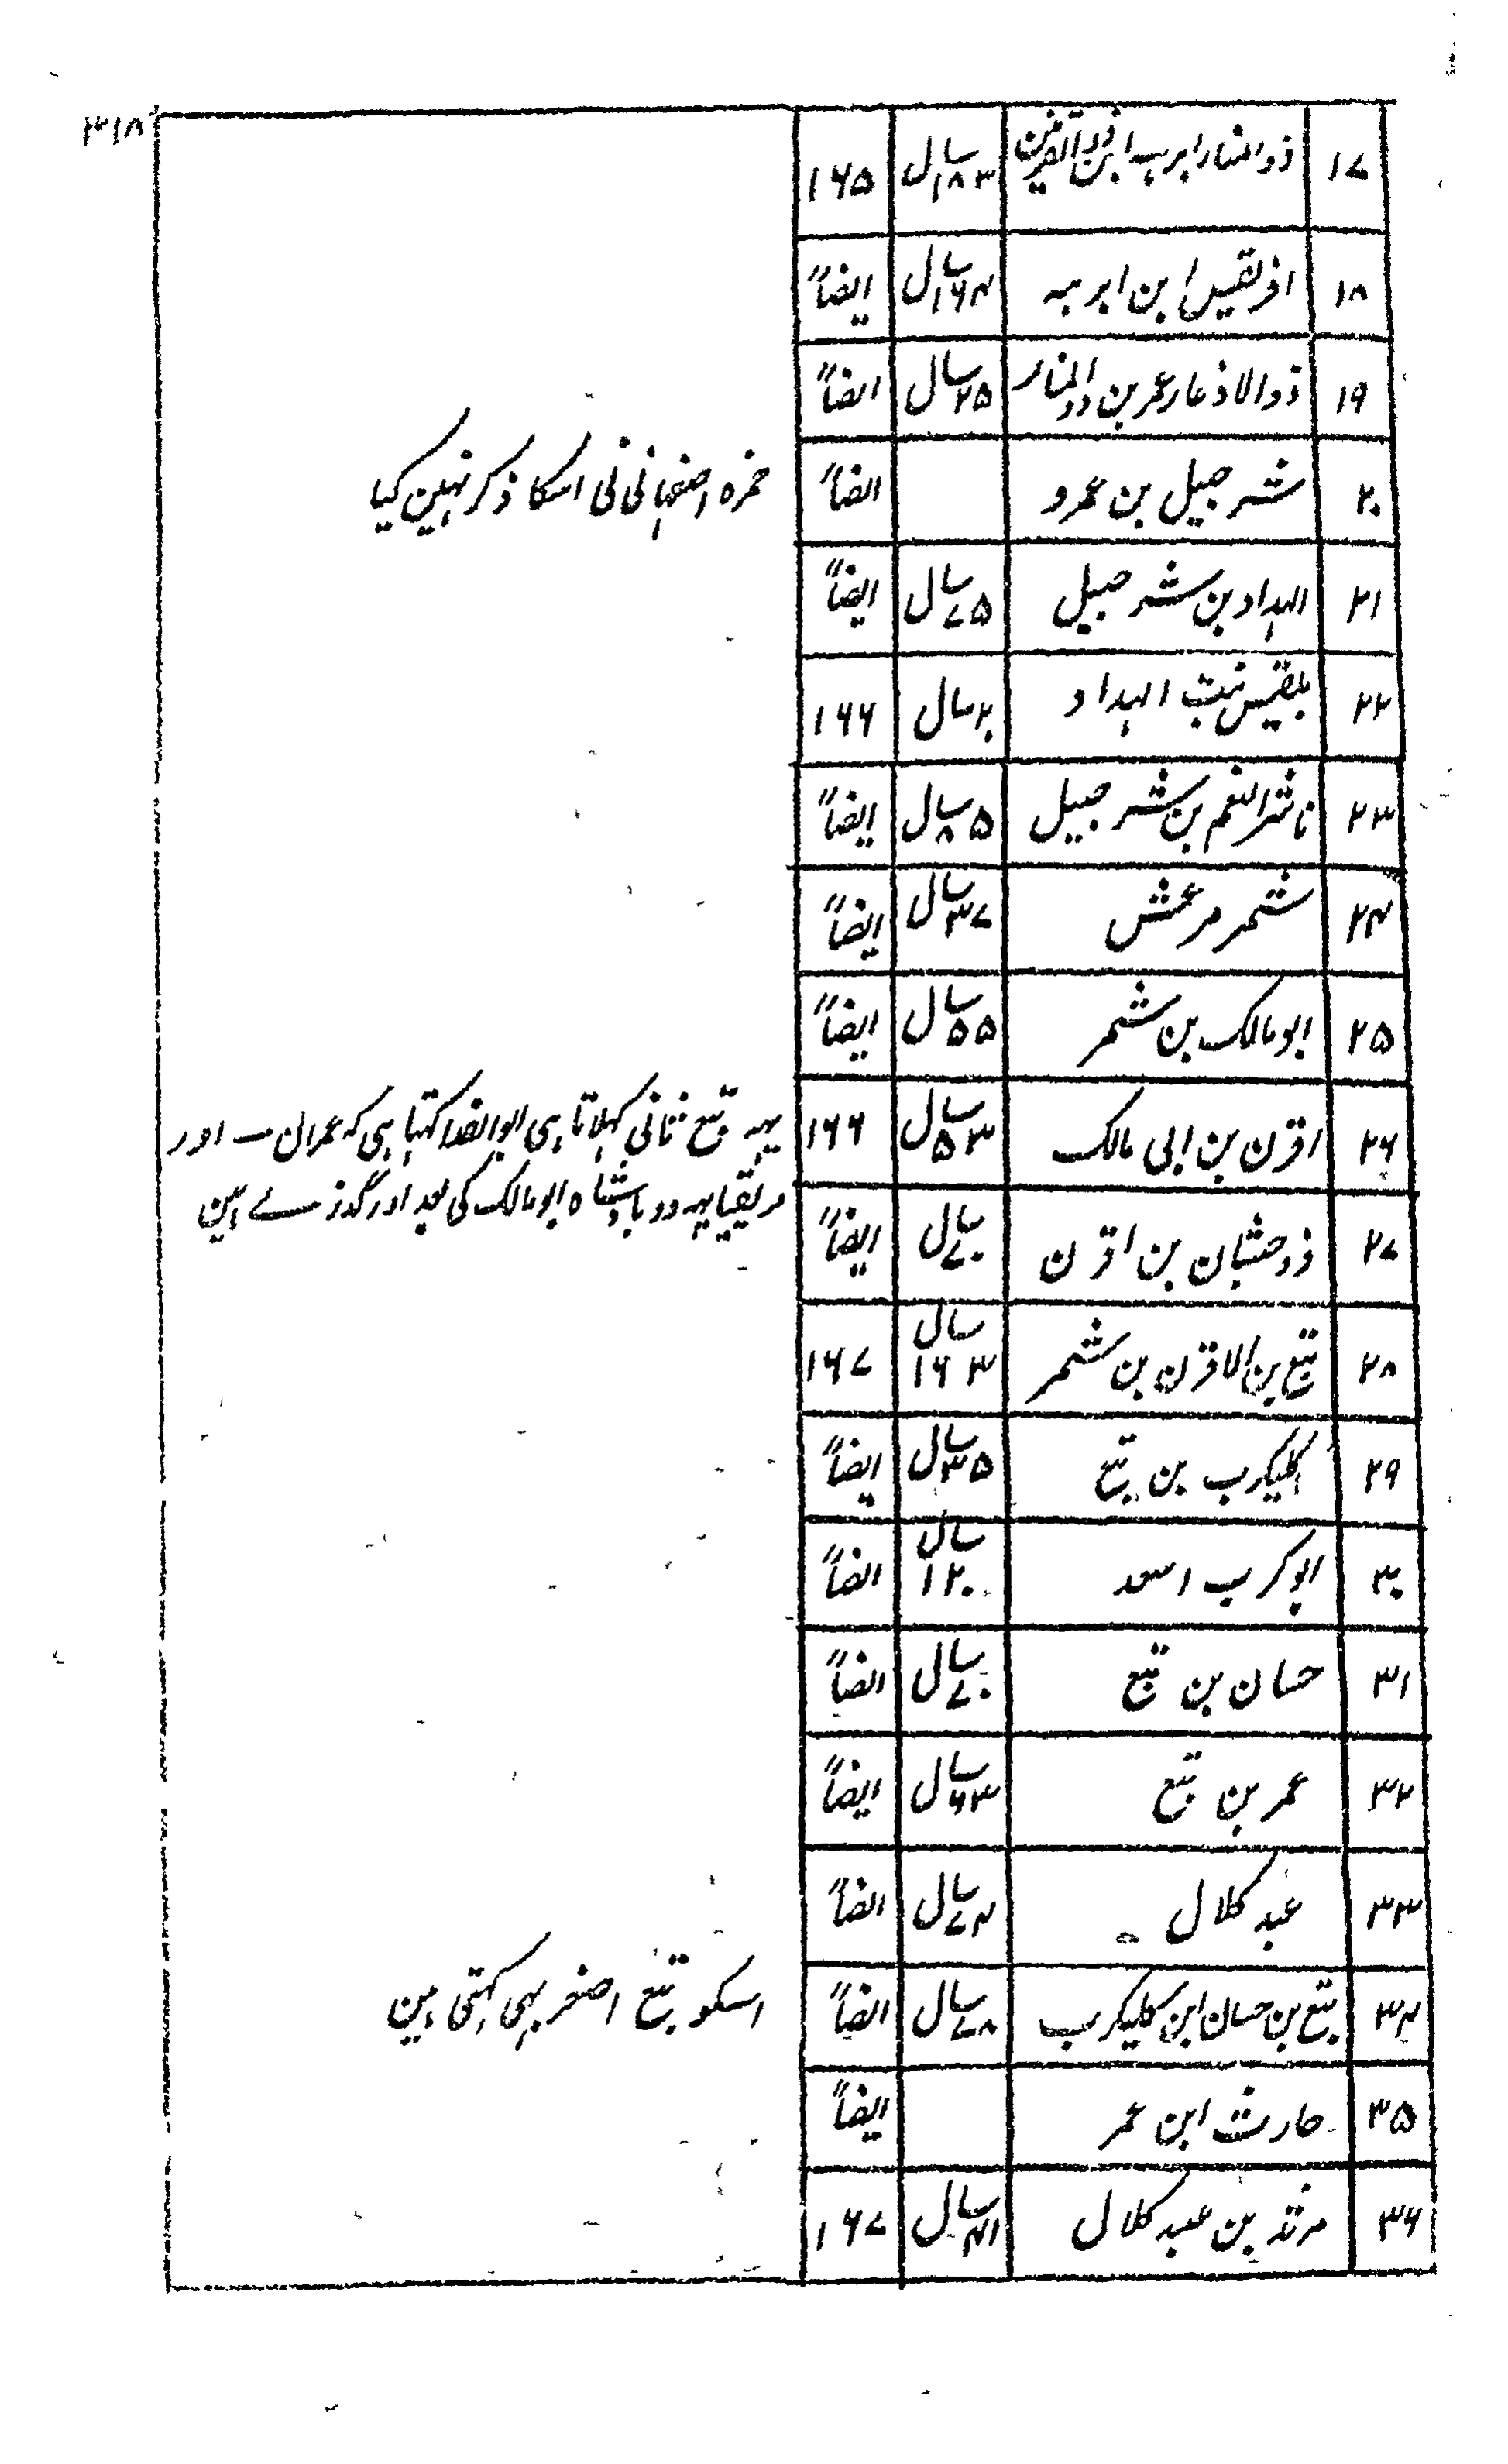 ۳۱۸
۱۷ ذوالمنار ابرہہ ابن ذوالقرنین ۱۸۳ سال ۱۶۵
۱۸ افریقیس ابن ابرہہ ۱۶۴ سال ایضاً
۱۹ ذوالاذعار عمر بن ذوالمنار ۲۵ سال ایضاً
۲۰ شرجیل بن عمرو ایضاً حمزہ اصفہانی نی اسکا ذکر نہین کیا
۲۱ الہداد بن شرجیل ۷۵ سال ایضاً
۲۲ بلقیس بنت الہداد ۲۰ سال ۱۶۶
۲۳ ناشرالنعم بن شرجیل ۸۵ سال ایضاً
۲۴ شمر مرعش ۳۷ سال ایضاً
۲۵ ابو مالک بن شمر ۵۵ سال ایضاً
۲۶ اقرن بن ابی مالک ۵۳ سال ۱۶۶ یہہ تبع ثانی کہلاتا ہی ابوالفدا کہتا ہی کہ عمران اور
۲۷ ذوحشبان بن اقرن ۷۰ سال ایضاً مریقیا یہہ دو بادشاہ ابو مالک کی بعد اور گذرے ہین
۲۸ تبع بن الاقرن بن شمر ۱۶۳ سال ۱۶۷
۲۹ کلیکرب بن تبع ۳۵ سال ایضاً
۳۰ ابوکرب اسعد ۱۲۰ سال ایضاً
۳۱ حسان بن تبع ۷۰ سال ایضاً
۳۲ عمر بن تبع ۶۳ سال ایضاً
۳۳ عبد کلال ۷۴ سال ایضاً
۳۴ تبع بن حسان ابن کلیکرب ۷۸ سال ایضاً اسکو تبع اصغر بہی کہتی ہین
۳۵ حارث ابن عمر ایضاً
۳۶ مرثد بن عبد کلال ۴۱ سال ۱۶۷